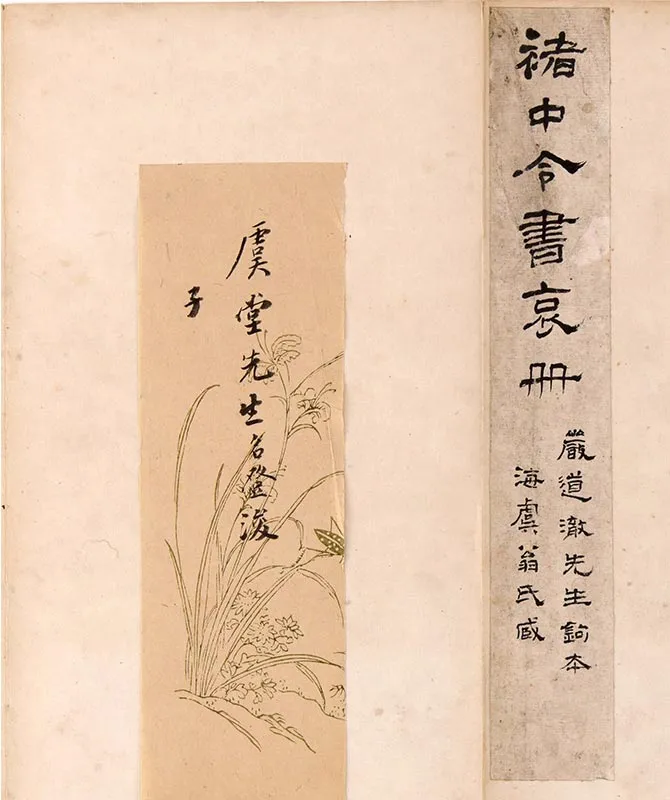 褚中令書哀冊
嚴道澈先生鉤本
海虞翁氏臧
虞堂先生名浚
子